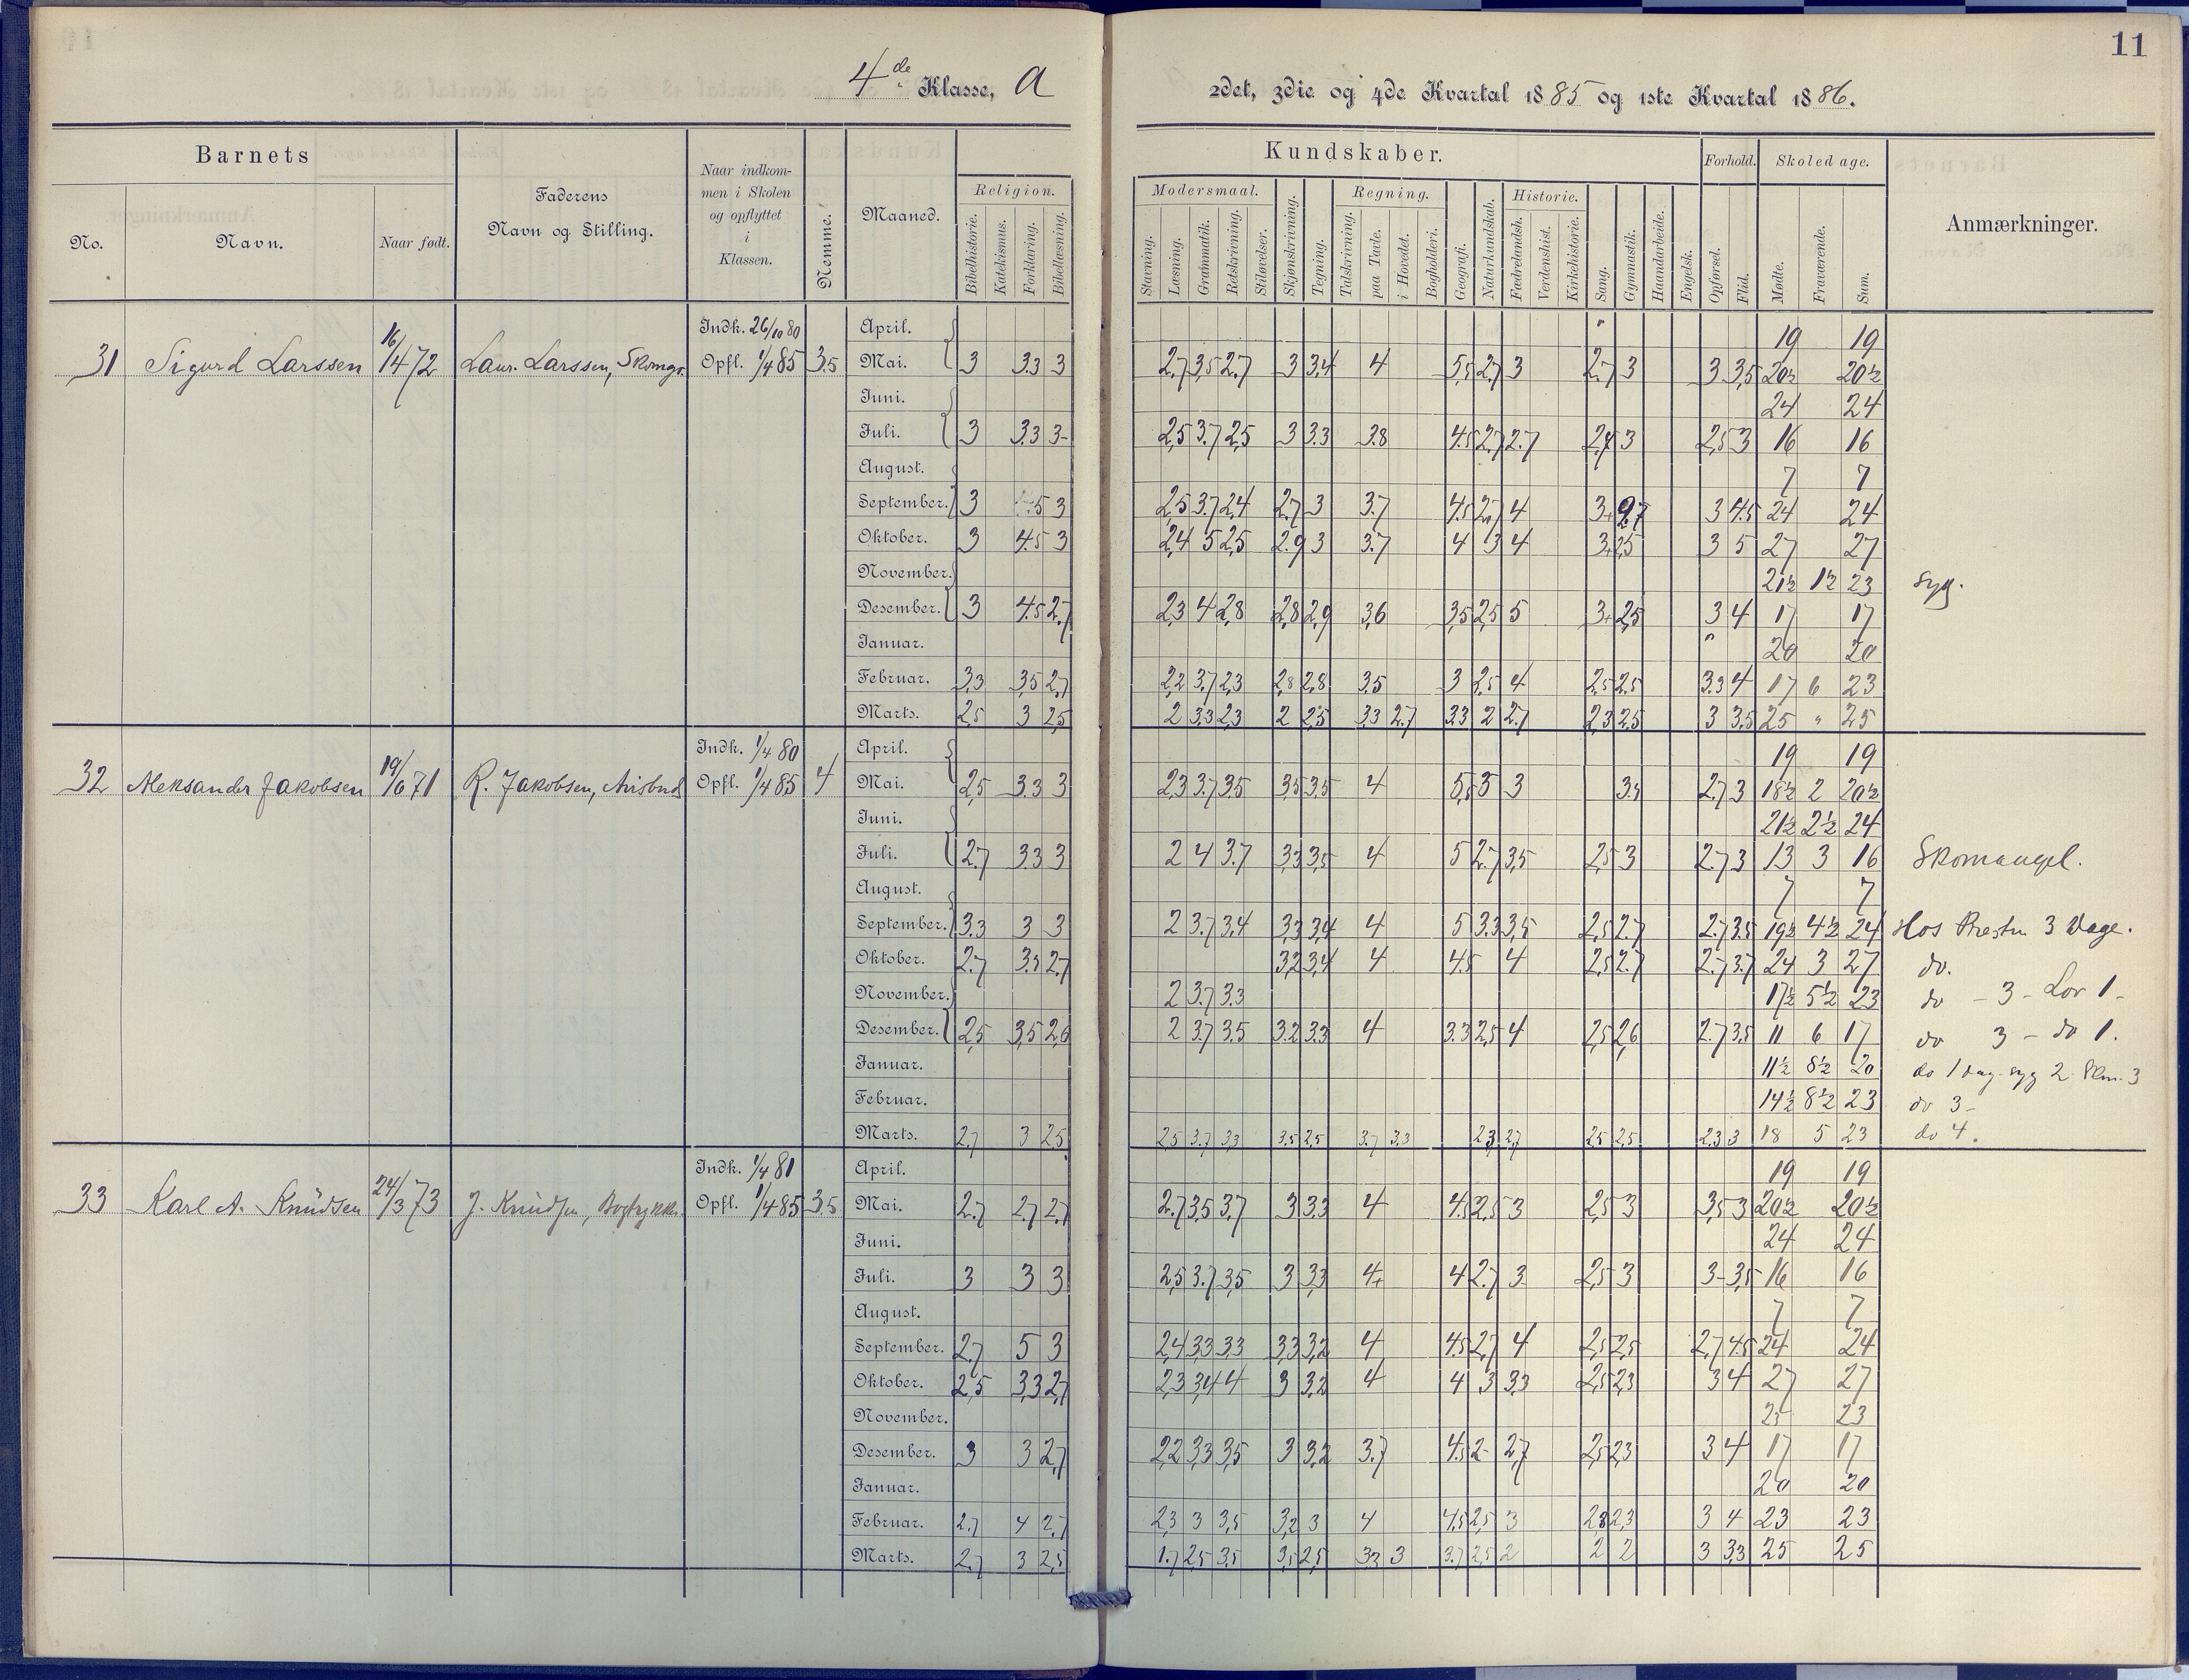 11
4de Klasse, A
2det, 3die og 4de Kvartal 1885 og 1ste Kvartal 1886.
Barnets
Faderens Navn og Stilling.
Naar indkommen i Skolen og opflyttet i Klassen.
Nemme.
Maaned.
Kundskaber.
Forhold.
Skoledage.
Anmærkninger.
No.
Navn.
Naar født.
Religion.
Modersmaal.
Regning.
Historie.
Bibelhistorie. Katekismus. Forklaring. Bibellæsning.
Stavning. Læsning. Grammatik. Retskrivning. Stiløvelser. Skjønskrivning. Tegning. Talskrivning. paa Tavle. i Hovedet. Bogholderi. Geografi. Naturkundskab. Fædrelandsh. Verdenshist. Kirkehistorie. Sang. Gymnastik. Haandarbeide. Engelsk. Opførsel. Flid. Mødte. Fraværende. Sum.
Indk. 26/10 80 April. 19 19
31 Sigurd Larssen 16/1 472 Laur. Larssen, Skomgr. Opfl. 1/4 85 3.5 Mai. 3 3.3 3 2.7 3,5 2.7 3 3,4 4 5,5 2,7 3 2.7 3 3 3,5 20½ 20½
Juni. 24 24
Juli. 3 3.3 3- 2,5 3.7 2,5 3 3.3 3.8 4.5 2,7 2.7 2,7 3 2,5 3 16 16
August. 7 7
September. 3 3 2,5 3.7 2,4 2.7 3 3.7 4.5 2,7 4 3+ 2,7 3 4.5 24 24
Oktober. 3 4.5 3 2,4 5 2,5 2.9 3 3.7 4 3 4 3+ 2,5 3 5 27 27
November. 21½ 1½ 23 Syg.
Desember. 3 4.5 2.7 2,3 4 2,8 2,8 2,9 3,6 3,5 2,5 5 3+ 2,5 3 4 17 17
Januar. 20 20
Februar. 3,3 3,5 2,7 2,2 3.7 2,3 2,8 2,8 3.5 3 2,5 4 2,5 2,5 3.3 4 17 6 23
Marts. 2,5 3 2,5 2 3,3 2,3 2 2,5 3,3 2.7 3,3 2 2.7 2,3 2,5 3 3,5 25 " 25
Indk. 1/4 80 April. 19 19
32 Aleksander Jakobsen 19/6 71 R. Jakobsen, Opfl. 1/4 85 4 Mai. 2,5 3.3 3 2,3 3.7 3.5 3,5 3,5 4 5,5 5 3 3,5 2.7 3 18½ 2 20½
Juni. 21½ 2½ 24
Juli. 2.7 3.3 3 2 4 3.7 3,3 3,5 4 5 2.7 3,5 2,5 3 2.7 3 13 3 16 Skomangel.
August. 7 7
September. 3.3 3 3 2 3.7 3,4 3,3 3,4 4 5 3.3 3,5 2,5 2.7 2.7 3.5 19½ 4½ 24 Hos Presten 3 Dage.
Oktober. 2.7 3,5 2,7 3,2 3,4 4 4.5 4 2,5 2.7 2.7 3.7 24 3 27 do.
November. 2 3.7 3.3 17½ 5½ 23 do - 3 - Lov 1 -
Desember. 2,5 3,5 2,6 2 3.7 3.5 3.2 3.3 4 3.3 2,5 4 2,5 2,6 2.7 3,5 11 6 17 do 3 - do 1.
Januar. 11½ 8½ 20 do 1 dag. syg 2. Skm. 3
Februar. 14½ 8½ 23 do 3 -
Marts. 2.7 3 2,5 2,5 3.7 3,3 3.5 2,5 3.7 3,3 2,3 2,7 2,5 2,5 2,3 3 18 5 23 do 4.
Indk. 1/4 81 April. 19 19
33 Karl A. Knudsen 24/3 73 J. Knudsen, Bogtrykk. Opfl. 1/4 85 3.5 Mai. 2.7 2,7 2,7 2.7 3,5 3,7 3 3.3 4 4.5 2,5 3 2,5 3 3,5 3 20½ 20½
Juni. 24 24
Juli. 3 3 3 2,5 3.7 3,5 3 3,3 4+ 4 2.7 3 2,5 3 3- 3,5 16 16
August. 7 7
September. 2.7 5 3 2,4 3,3 3,3 3,3 3,2 4 4.5 2,7 4 2,5 2,5 2,7 4.5 24 24
Oktober. 2,5 3,3 2,7 2,3 3,4 4 3 3,2 4 4 3 3,3 2,5 2,3 3 4 27 27
November. 23
Desember. 3 3 2,7 2,2 3,3 3,5 3 3,2 3.7 4.5 2- 2,7 2,5 2,3 3 4 17 17
Januar. 20 20
Februar. 2.7 4 2.7 2,3 3 3,5 3,2 3 4 4,5 2,5 3 2,8 2,3 3 4 23 23
Marts. 2.7 3 2,5 1.7 2,5 3,5 3,5 2,5 3,3 3 3.7 2,5 2 2 2 3 3,3 25 25